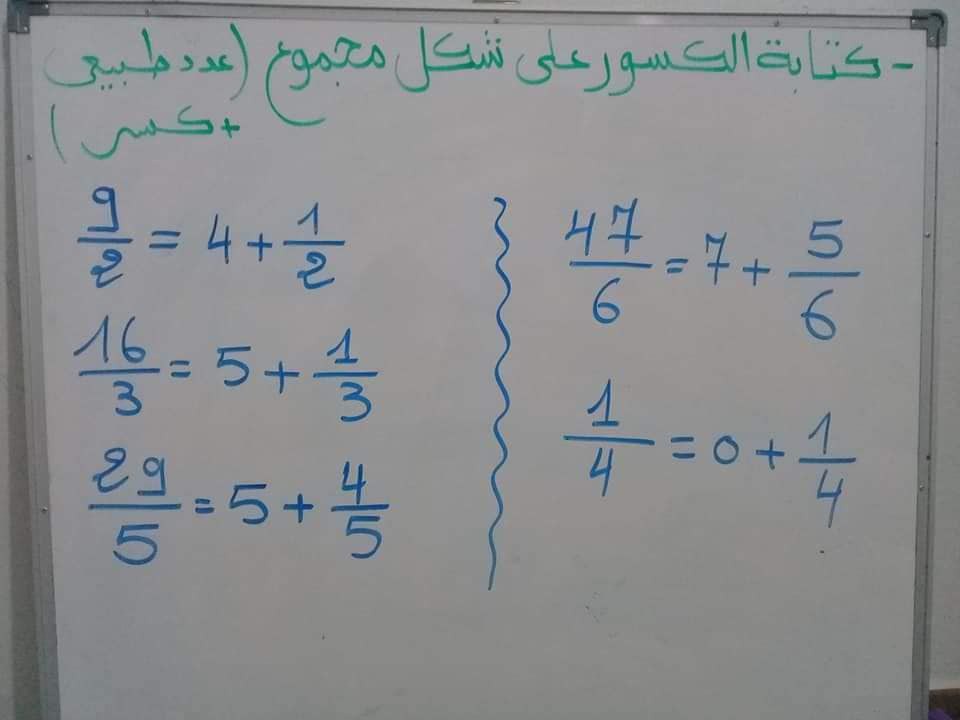 - كتابة الكسور على شكل مجموع (عدد طبيعي
+ كسر)
9/2 = 4 + 1/2
16/3 = 5 + 1/3
29/5 = 5 + 4/5
47/6 = 7 + 5/6
1/4 = 0 + 1/4